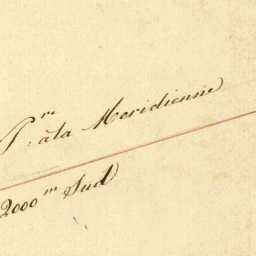 P.re àla Meridienne
2000 m Sud